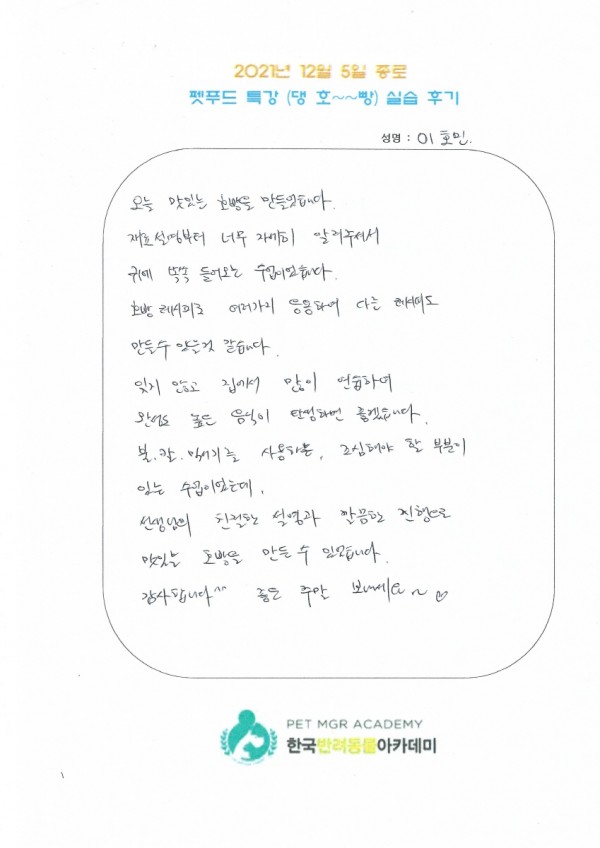 2021년 12월 5일 종로
펫푸드 특강 (댕 호~~빵) 실습 후기
성명 : 이호민.
오늘 맛있는 호빵을 만들었습니다.
재료설명부터 너무 자세히 알려주셔서
귀에 쏙쏙 들어오는 수업이었습니다.
호빵 레시피로 여러가지 응용하여 다른 레시피도
만들수 있을것 같습니다.
잊지 않고 집에서 많이 연습하여
완성도 높은 음식이 탄생하면 좋겠습니다.
불, 칼, 믹서기를 사용하는, 조심해야 할 부분이
있는 수업이었는데,
선생님의 친절한 설명과 깔끔한 진행으로
맛있는 호빵을 만들 수 있었습니다.
감사합니다^^ 좋은 주말 보내세요~♡
PET MGR ACADEMY
한국반려동물아카데미